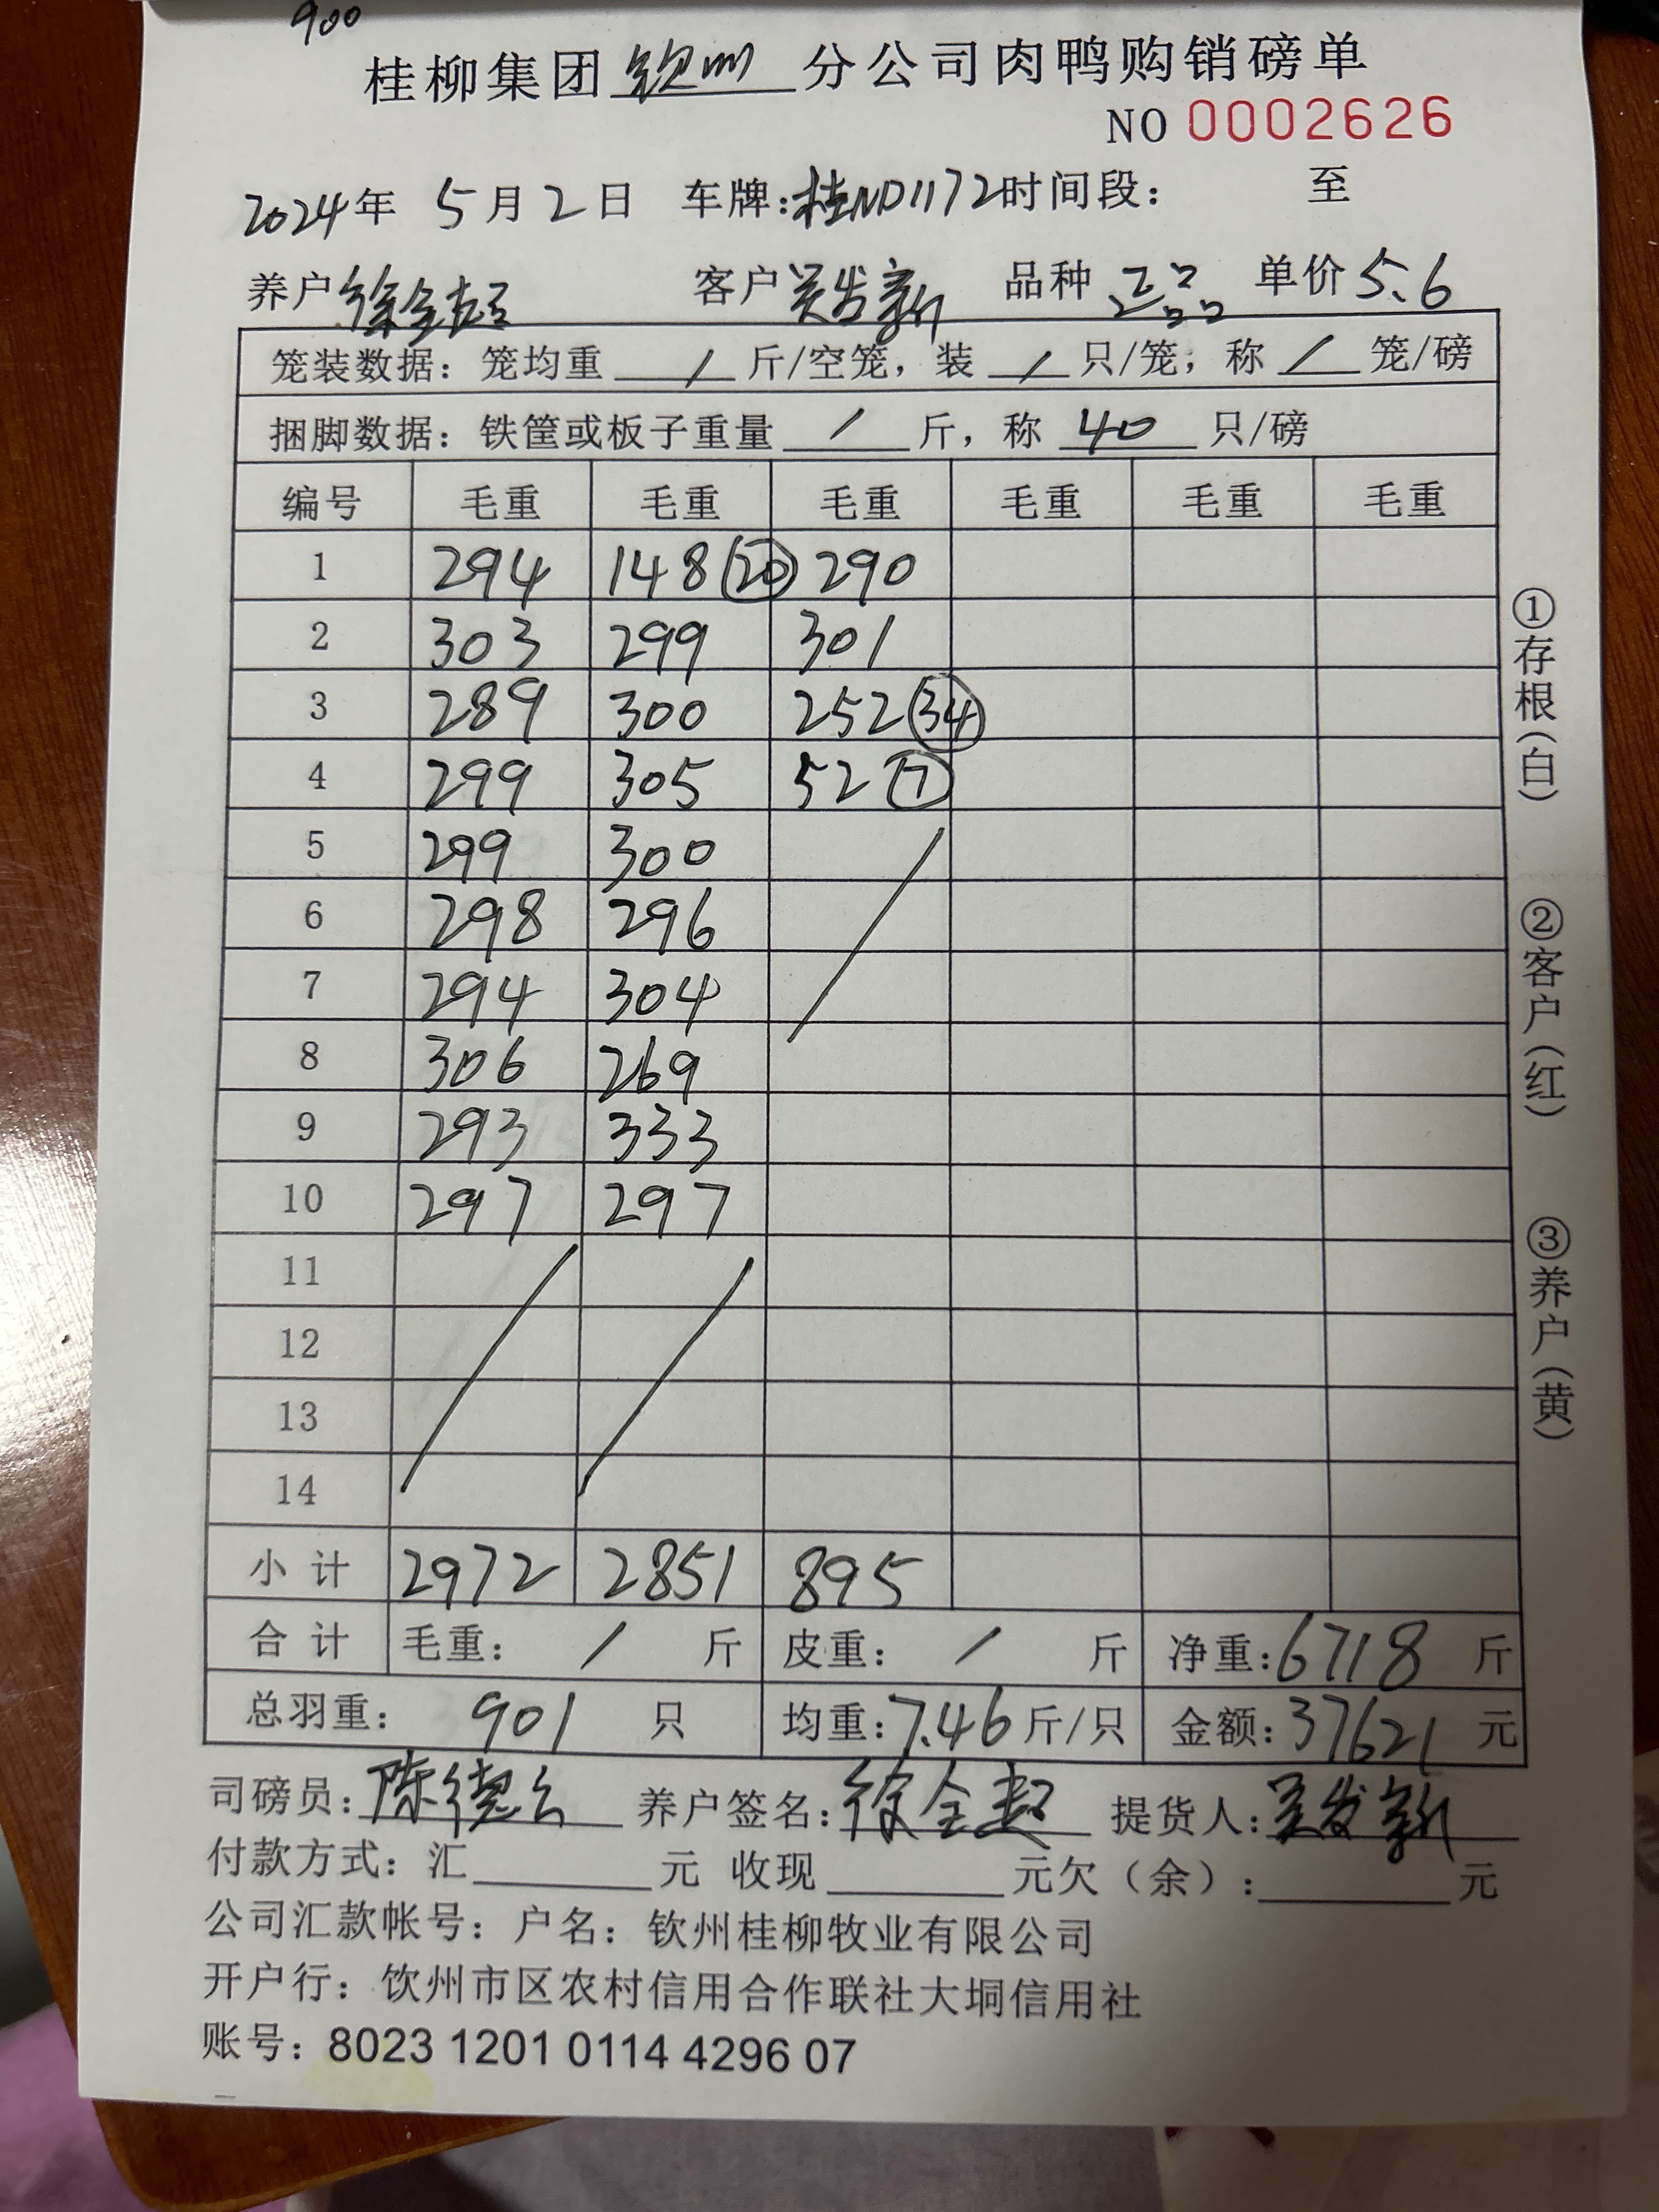 900
桂柳集团钦州分公司肉鸭购销磅单
NO 0002626
2024年 5月2日 车牌:桂ND1172时间段: 至
养户徐全超 客户吴发新 品种 二品 单价5.6
笼装数据: 笼均重 / 斤/空笼, 装 / 只/笼; 称 / 笼/磅
捆脚数据: 铁筐或板子重量 / 斤, 称 40 只/磅
编号 毛重 毛重 毛重 毛重 毛重 毛重
1 294 148(20) 290
2 303 299 301
3 289 300 252(34)
4 299 305 52(7)
5 299 300 /
6 298 296
7 294 304
8 306 269
9 293 333
10 297 297
11 / /
12
13
14
小计 2972 2851 895
合计 毛重: / 斤 皮重: / 斤 净重:6718 斤
总羽重: 901 只 均重:7.46斤/只 金额:37621 元
司磅员:陈德云 养户签名:徐全超 提货人:吴发新
付款方式: 汇 元 收现 元欠(余): 元
公司汇款帐号: 户名: 钦州桂柳牧业有限公司
开户行: 钦州市区农村信用合作联社大垌信用社
账号: 8023 1201 0114 4296 07
①存根(白)
②客户(红)
③养户(黄)